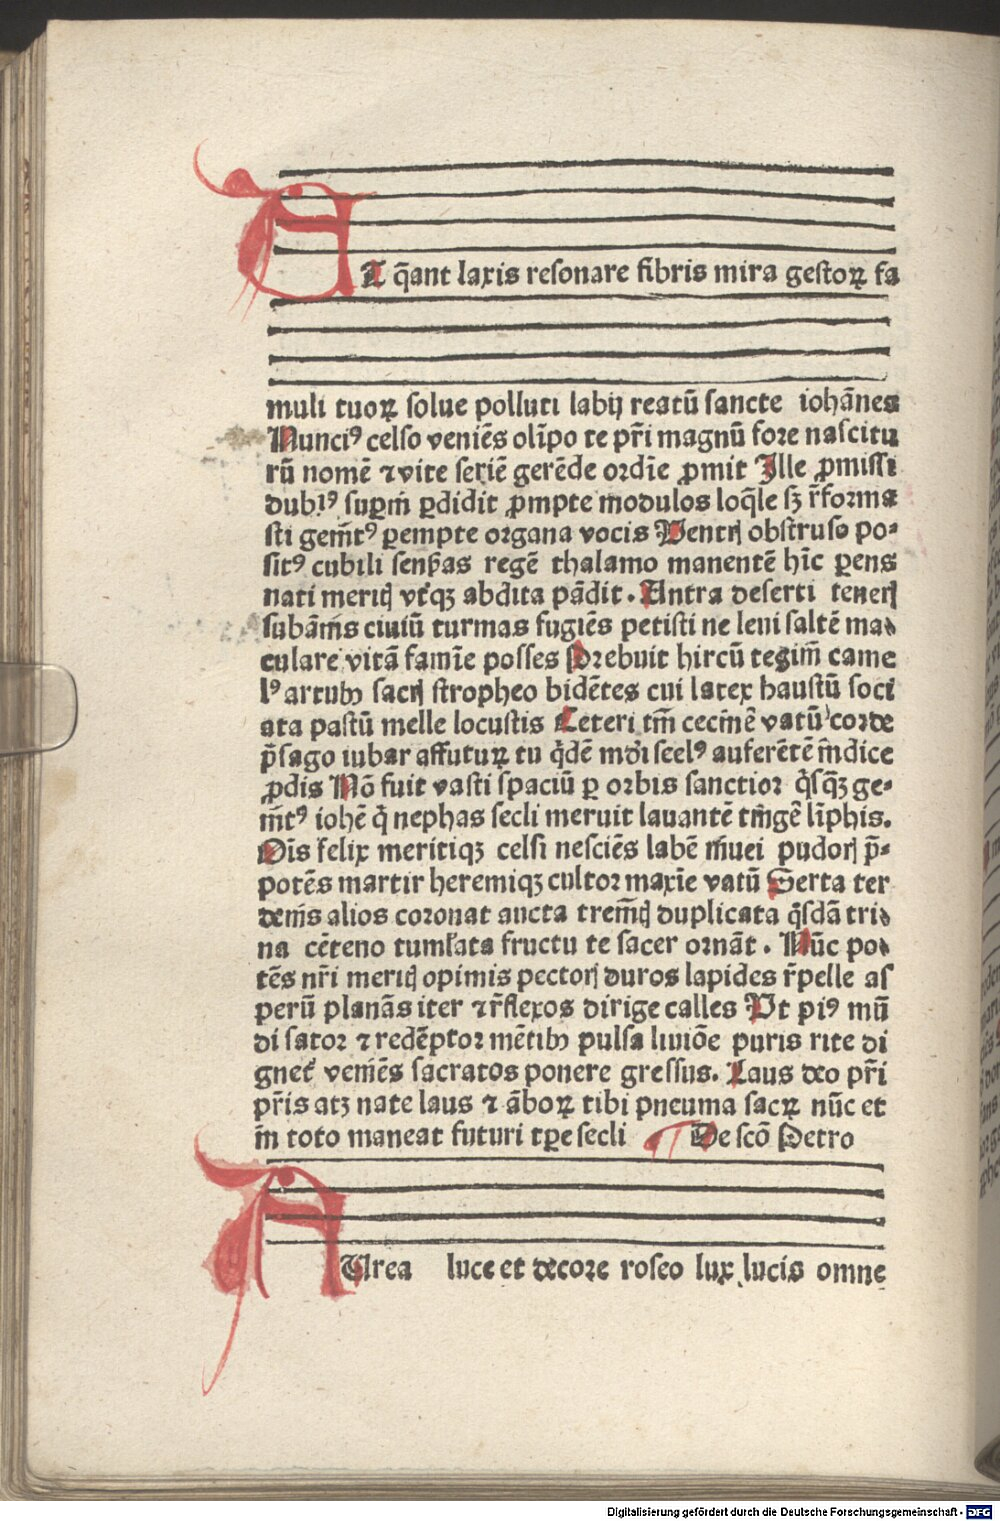 UT q̄ant laxis resonare fibris mira gestoꝝ fa
muli tuoꝝ solue polluti labij reatū sancte iohānes
Nunciꝰ celso veniēs olīpo te pr̄i magnū fore nascitu
rū nomē ⁊ vite seriē gerēde ordīe ꝓmit Ille ꝓmissi
dubiꝰ suꝑni ꝑdidit ꝓmpte modulos loq̄le sꝫ r̄forma
sti gem̄tꝰ ꝑempte organa vocis Ventrꝭ obstruso po⸗
sitꝰ cubili senseras regē thalamo manentē hīc ꝑens
nati meritꝭ vt̓qꝫ abdita pādit. Antra deserti tenerꝭ
sub ānis ciuiū turmas fugiēs petisti ne leui saltē ma⸗
culare vitā famīe posses Prebuit hircū tegim̄ came
lꝰ artubꝫ sacrꝭ stropheo bidētes cui latex haustū soci
ata pastū melle locustis Ceteri tm̄ cecinē vatū corde
p̄sago iubar affuturꝝ tu q̇dē mūdi scelꝰ auferētē īndice
ꝓdis Nō fuit vasti spaciū ꝑ orbis sanctior q̇sq̄ꝫ ge⸗
nitꝰ iohē q̇ nephas secli meruit lauantē tīgē līphis.
Oīs felix meritiqꝫ celsi nesciēs labē niuei pudorꝭ p̄⸗
potēs martir heremiqꝫ cultor maxīe vatū Serta ter
denis alios coronat aucta cremētꝭ duplicata q̇sdā tri⸗
na cēteno cumlata fructu te sacer ornāt. Nūc po⸗
tēs nr̄i meritꝭ opimis pectorꝭ duros lapides r̄pelle as
perū planās iter ⁊ r̄flexos dirige calles Vt piꝰ mū
di sator ⁊ redēptor mētibꝫ pulsa liuiōe puris rite di
gnet̓ veniēs sacratos ponere gressus. Laus deo pr̄i
pr̄is atqꝫ nate laus ⁊ āboꝝ tibi pneuma sacrꝝ nūc et
in toto maneat futuri tꝑe secli De scō Petro
AUrea luce et decore roseo lux lucis omne
Digitalisierung gefördert durch die Deutsche Forschungsgemeinschaft - DFG